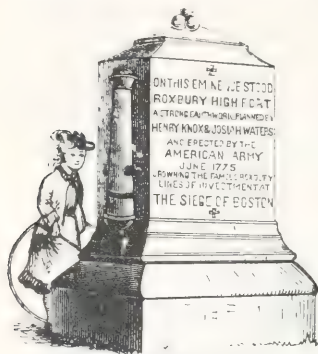 ON THIS EMINENCE STOOD
ROXBURY HIGH FORT
A STRONG EARTHWORK PLANNED BY
HENRY KNOX & JOSIAH WATERS
AND ERECTED BY THE
AMERICAN ARMY
JUNE 1775
CROWNING THE FAMOUS ROXBURY
LINES OF INVESTMENT AT
THE SIEGE OF BOSTON